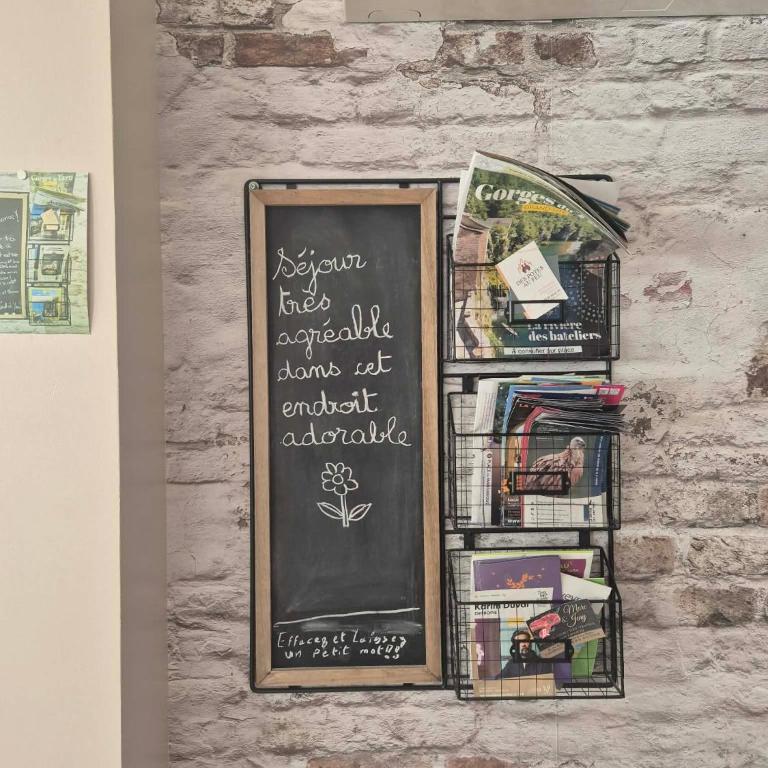 Séjour
très
agréable
dans cet
endroit
adorable
Effacez et Laissez
un petit mot!!
Gorges
DES POTES
AU FEU
La rivière
des bateliers
À consulter sur place
Karim Duval